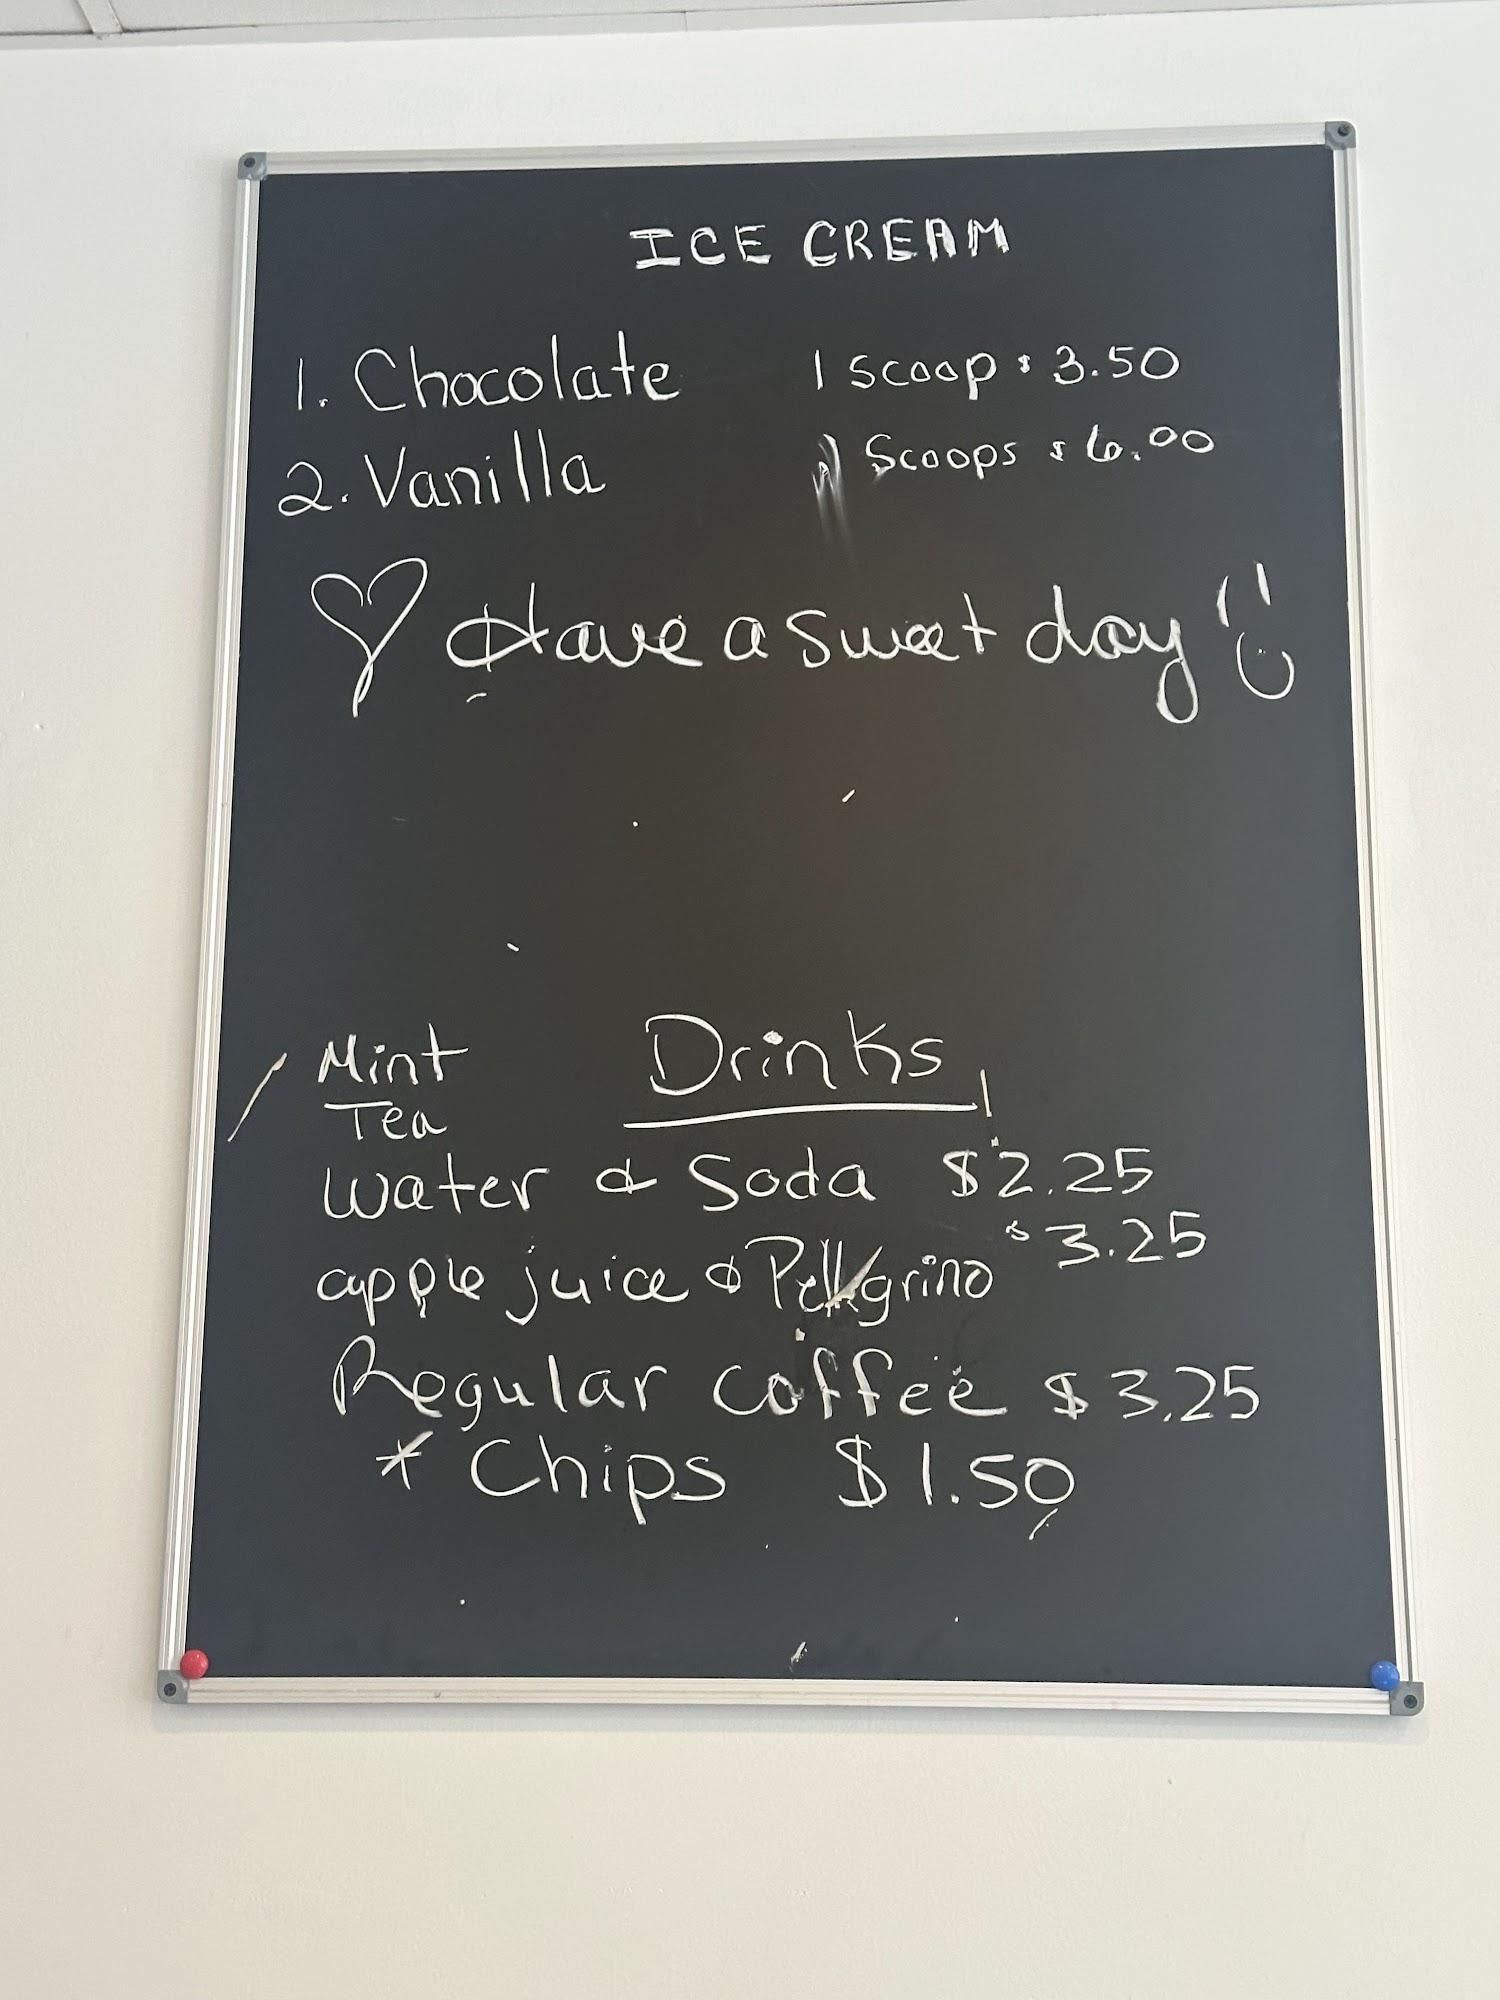 ICE CREAM
1. Chocolate 1 scoop $3.50
2. Vanilla Scoops $6.00
Have a sweet day
Mint Drinks
Tea
Water & Soda $2.25
apple juice & Pellgrino $3.25
Regular coffee $3.25
* Chips $1.50